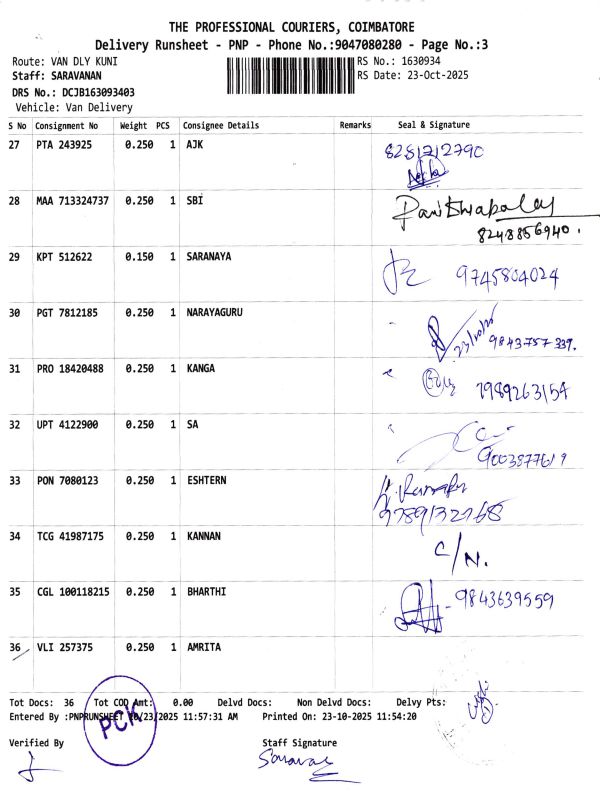 THE PROFESSIONAL COURIERS, COIMBATORE
Delivery Runsheet - PNP - Phone No.:9047080280 - Page No.:3
Route: VAN DLY KUNI
RS No.: 1630934
Staff: SARAVANAN
RS Date: 23-Oct-2025
DRS No.: DCJB163093403
Vehicle: Van Delivery
S No Consignment No Weight PCS Consignee Details Remarks Seal & Signature
27 PTA 243925 0.250 1 AJK 8281712790
28 MAA 713324737 0.250 1 SBI
8248856940.
29 KPT 512622 0.150 1 SARANAYA 9745804024
30 PGT 7812185 0.250 1 NARAYAGURU 23/10/25
9843757339.
31 PRO 18420488 0.250 1 KANGA 7989263154
32 UPT 4122900 0.250 1 SA
9003877619
33 PON 7080123 0.250 1 ESHTERN
9789132768
34 TCG 41987175 0.250 1 KANNAN C/N.
35 CGL 100118215 0.250 1 BHARTHI 9843639559
36 VLI 257375 0.250 1 AMRITA
Tot Docs: 36 Tot COD Amt: 0.00 Delvd Docs: Non Delvd Docs: Delvy Pts:
Entered By :PNPRUNSHEET 10/23/2025 11:57:31 AM Printed On: 23-10-2025 11:54:20
PCK
Verified By Staff Signature
Saravan